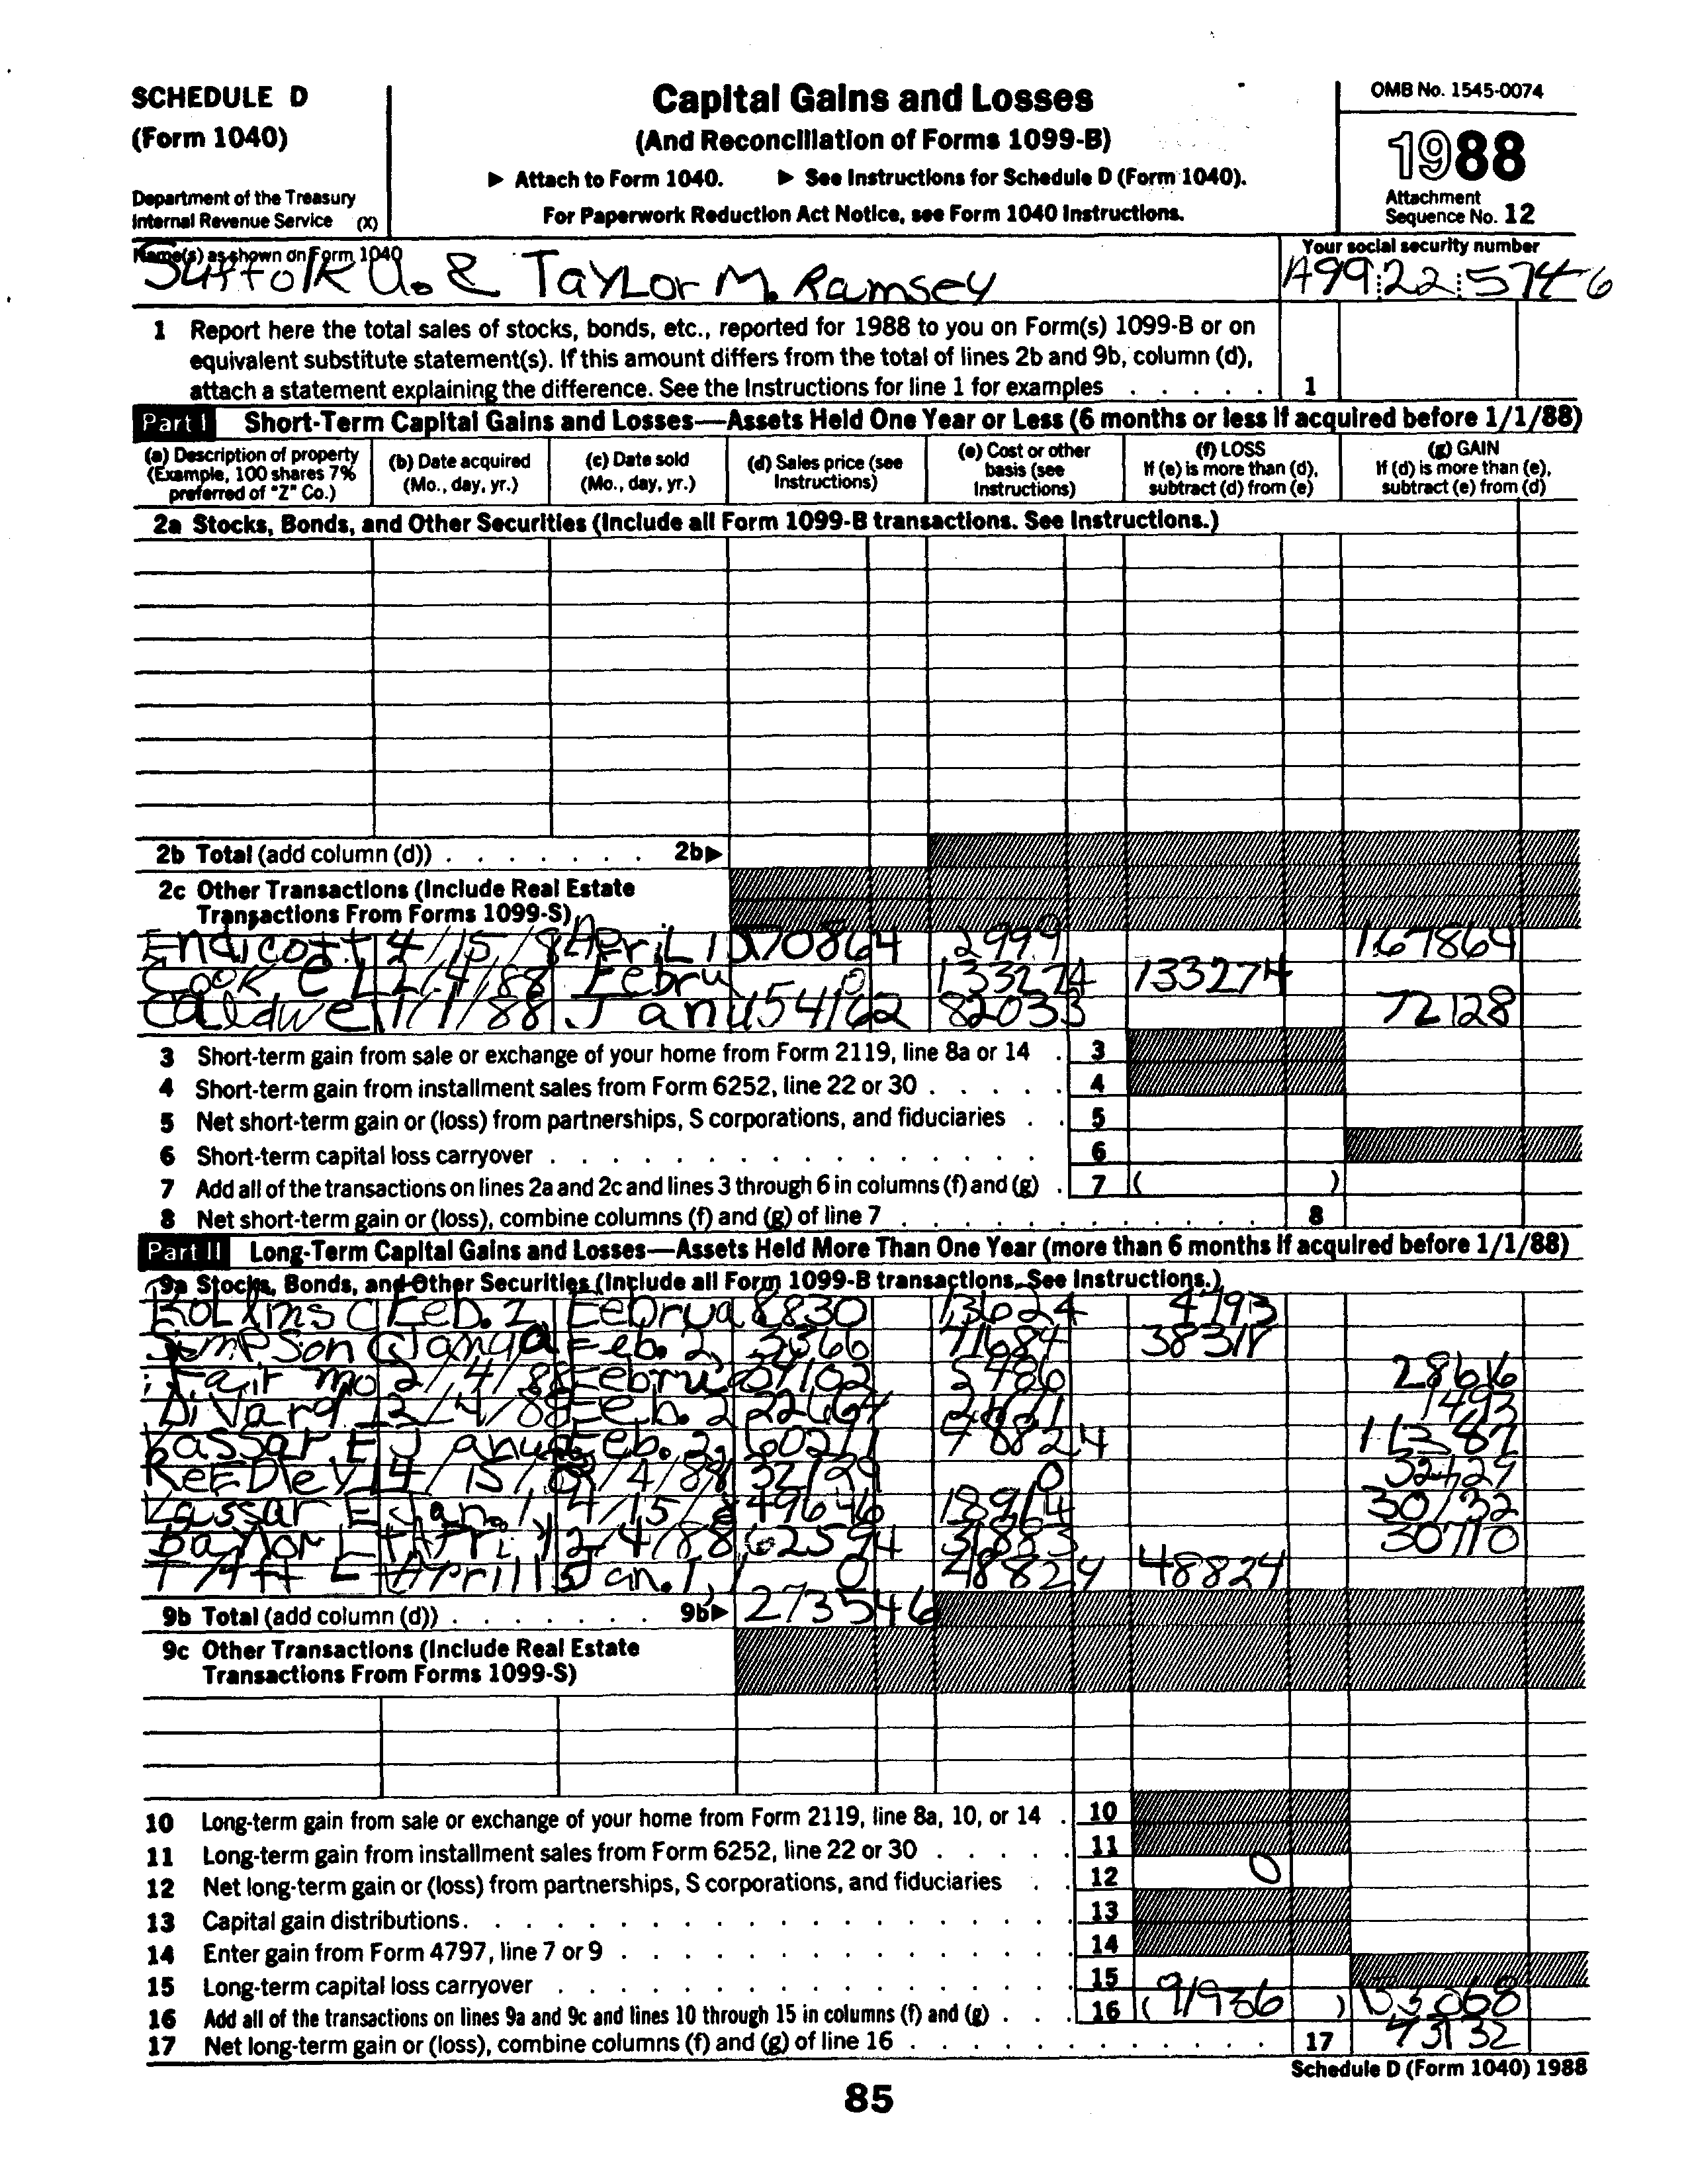 SCHEDULE D
(Form 1040)
Department of the Treasury
Internal Revenue Service (X)
Capital Gains and Losses
(And Reconciliation of Forms 1099-B)
▶ Attach to Form 1040. ▶ See Instructions for Schedule D (Form 1040).
For Paperwork Reduction Act Notice, see Form 1040 Instructions.
OMB No. 1545-0074
1988
Attachment
Sequence No. 12
Name(s) as shown on Form 1040
Suffolk U. & Taylor M. Ramsey
Your social security number
1 Report here the total sales of stocks, bonds, etc., reported for 1988 to you on Form(s) 1099-B or on
equivalent substitute statement(s). If this amount differs from the total of lines 2b and 9b, column (d),
attach a statement explaining the difference. See the Instructions for line 1 for examples . . . . . 1
Part I Short-Term Capital Gains and Losses—Assets Held One Year or Less (6 months or less if acquired before 1/1/88)
(a) Description of property
(Example, 100 shares 7%
preferred of "Z" Co.)
(b) Date acquired
(Mo., day, yr.)
(c) Date sold
(Mo., day, yr.)
(d) Sales price (see
Instructions)
(e) Cost or other
basis (see
Instructions)
(f) LOSS
If (e) is more than (d),
subtract (d) from (e)
(g) GAIN
If (d) is more than (e),
subtract (e) from (d)
2a Stocks, Bonds, and Other Securities (Include all Form 1099-B transactions. See Instructions.)
2b Total (add column (d)) . . . . . . . 2b▶
2c Other Transactions (Include Real Estate
Transactions From Forms 1099-S)
Endicott 4/15/8 April 1 170864 2999 167864
Cook, e 2/4/88 Febru 0 133274 133274
Caldwel 1/1/88 Janu 154162 82033 72128
3 Short-term gain from sale or exchange of your home from Form 2119, line 8a or 14 . 3
4 Short-term gain from installment sales from Form 6252, line 22 or 30 . . . . . 4
5 Net short-term gain or (loss) from partnerships, S corporations, and fiduciaries . . 5
6 Short-term capital loss carryover . . . . . . . . . . . . . . . . 6
7 Add all of the transactions on lines 2a and 2c and lines 3 through 6 in columns (f) and (g) . 7 ( )
8 Net short-term gain or (loss), combine columns (f) and (g) of line 7 . . . . . . . . . . . . 8
Part II Long-Term Capital Gains and Losses—Assets Held More Than One Year (more than 6 months if acquired before 1/1/88)
9a Stocks, Bonds, and Other Securities (Include all Form 1099-B transactions. See Instructions.)
Rollins C Feb. 2 Februa 8830 13624 4793
Simpson Feb. 2, 71684
Fair mo 2/4/8 Febru
Feb. 2
Vassar E Janua Feb. 2, 48824
Reedley 4/15/ /4/88 0
Vassar E Jan. 1, 4/15/8 49646 18914 30732
Baylor L 2/4/88 62594 31883 30710
Taft L April 15 Jan. 1, 0 48824 48824
9b Total (add column (d)) . . . . . . . 9b▶ 273546
9c Other Transactions (Include Real Estate
Transactions From Forms 1099-S)
10 Long-term gain from sale or exchange of your home from Form 2119, line 8a, 10, or 14 . 10
11 Long-term gain from installment sales from Form 6252, line 22 or 30 . . . . . 11
12 Net long-term gain or (loss) from partnerships, S corporations, and fiduciaries . . 12 0
13 Capital gain distributions. . . . . . . . . . . . . . . . . . . . 13
14 Enter gain from Form 4797, line 7 or 9 . . . . . . . . . . . . . . . 14
15 Long-term capital loss carryover . . . . . . . . . . . . . . . . 15
16 Add all of the transactions on lines 9a and 9c and lines 10 through 15 in columns (f) and (g) . . . 16 ( 91936 )
17 Net long-term gain or (loss), combine columns (f) and (g) of line 16 . . . . . . . . . . . . 17 43132
Schedule D (Form 1040) 1988
85